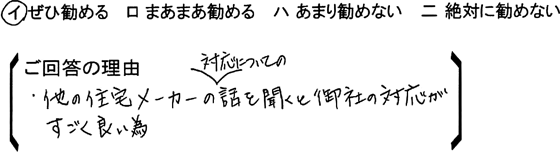 イ ぜひ勧める ロ まあまあ勧める ハ あまり勧めない ニ 絶対に勧めない
ご回答の理由
対応についての
・他の住宅メーカーの話を聞くと御社の対応が
すごく良い為